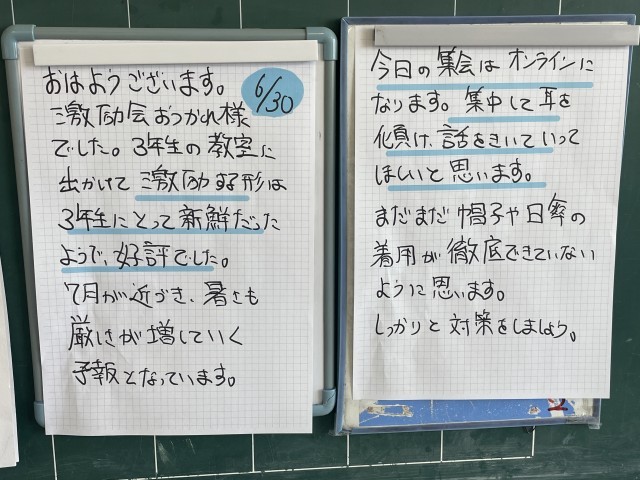 おはようございます。
6/30
激励会おつかれ様
でした。3年生の教室に
出かけて激励する形は
3年生にとって新鮮だった
ようで、好評でした。
7月が近づき、暑さも
厳しさが増していく
予報となっています。
今日の集会はオンラインに
なります。集中して耳を
傾け、話をきいていって
ほしいと思います。
まだまだ帽子や日傘の
着用が徹底できていない
ように思います。
しっかりと対策をしましょう。